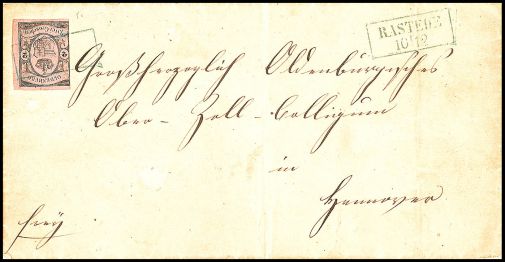 RASTEDE
10/12
Großherzoglich Oldenburgisches
Ober-Zoll-Collegium
in
Hannover
frey
OLDENBURG